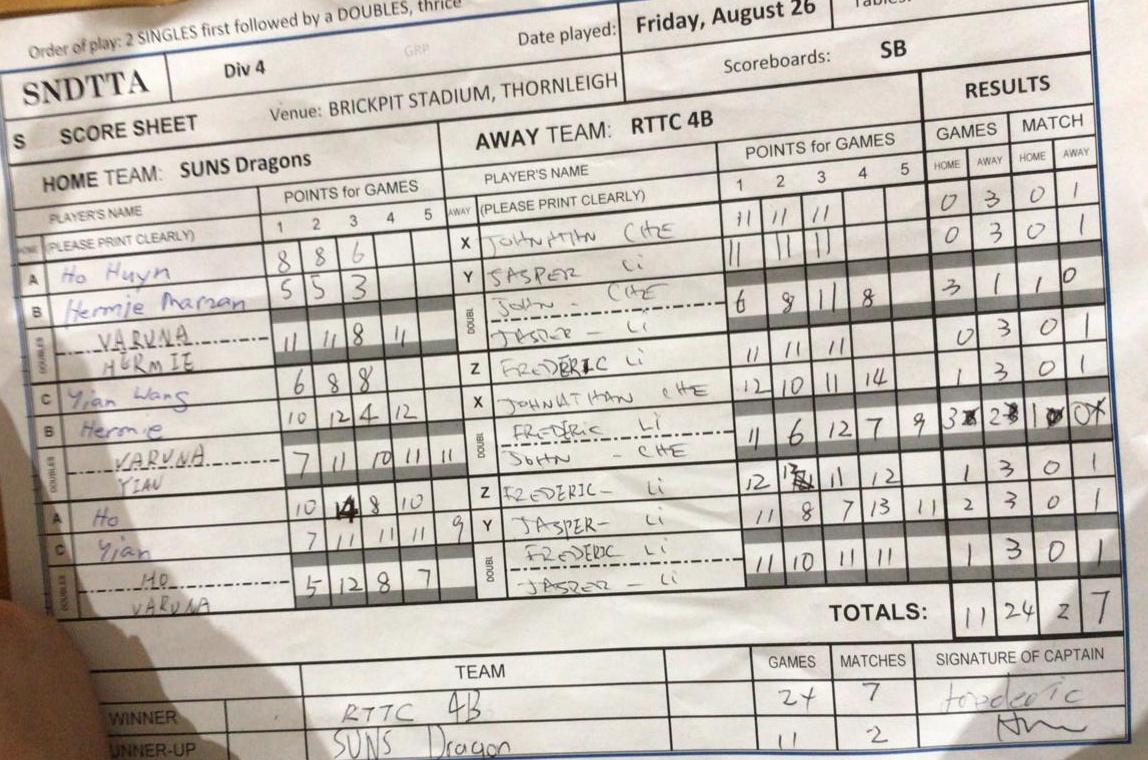 Order of play: 2 SINGLES first followed by a DOUBLES, thrice
SNDTTA Div 4 GRP Date played: Friday, August 26
S SCORE SHEET Venue: BRICKPIT STADIUM, THORNLEIGH Scoreboards: SB
HOME TEAM: SUNS Dragons AWAY TEAM: RTTC 4B RESULTS
GAMES MATCH
PLAYER'S NAME POINTS for GAMES PLAYER'S NAME POINTS for GAMES HOME AWAY HOME AWAY
(PLEASE PRINT CLEARLY) 1 2 3 4 5 AWAY (PLEASE PRINT CLEARLY) 1 2 3 4 5
A Ho Huyn 8 8 6 X JOHNATHAN CHE 11 11 11 0 3 0 1
B Hermie 5 5 3 Y SASPER Li 11 11 11 0 3 0 1
DOUBLES VARUNA 11 11 8 11 DOUBL JOHN - CHE 6 8 11 8 3 1 1 0
HERMIE JASPER - Li
C Yian Wang 6 8 8 Z FREDERIC Li 11 11 11 0 3 0 1
B Hermie 10 12 4 12 X JOHNATHAN CHE 12 10 11 14 1 3 0 1
DOUBLES VARUNA 7 11 10 11 11 DOUBL FREDERIC Li 11 6 12 7 9 3 2 1 0
YIAN JOHN - CHE
A Ho 10 14 8 10 Z FREDERIC - Li 12 12 11 12 1 3 0 1
C Yian 7 11 11 11 9 Y JASPER - Li 11 8 7 13 11 2 3 0 1
DOUBLES HO 5 12 8 7 DOUBL FREDERIC Li 11 10 11 11 1 3 0 1
VARUNA JASPER - Li
TOTALS: 11 24 2 7
TEAM GAMES MATCHES SIGNATURE OF CAPTAIN
WINNER RTTC 4B 24 7
UNNER-UP SUNS Dragon 11 2